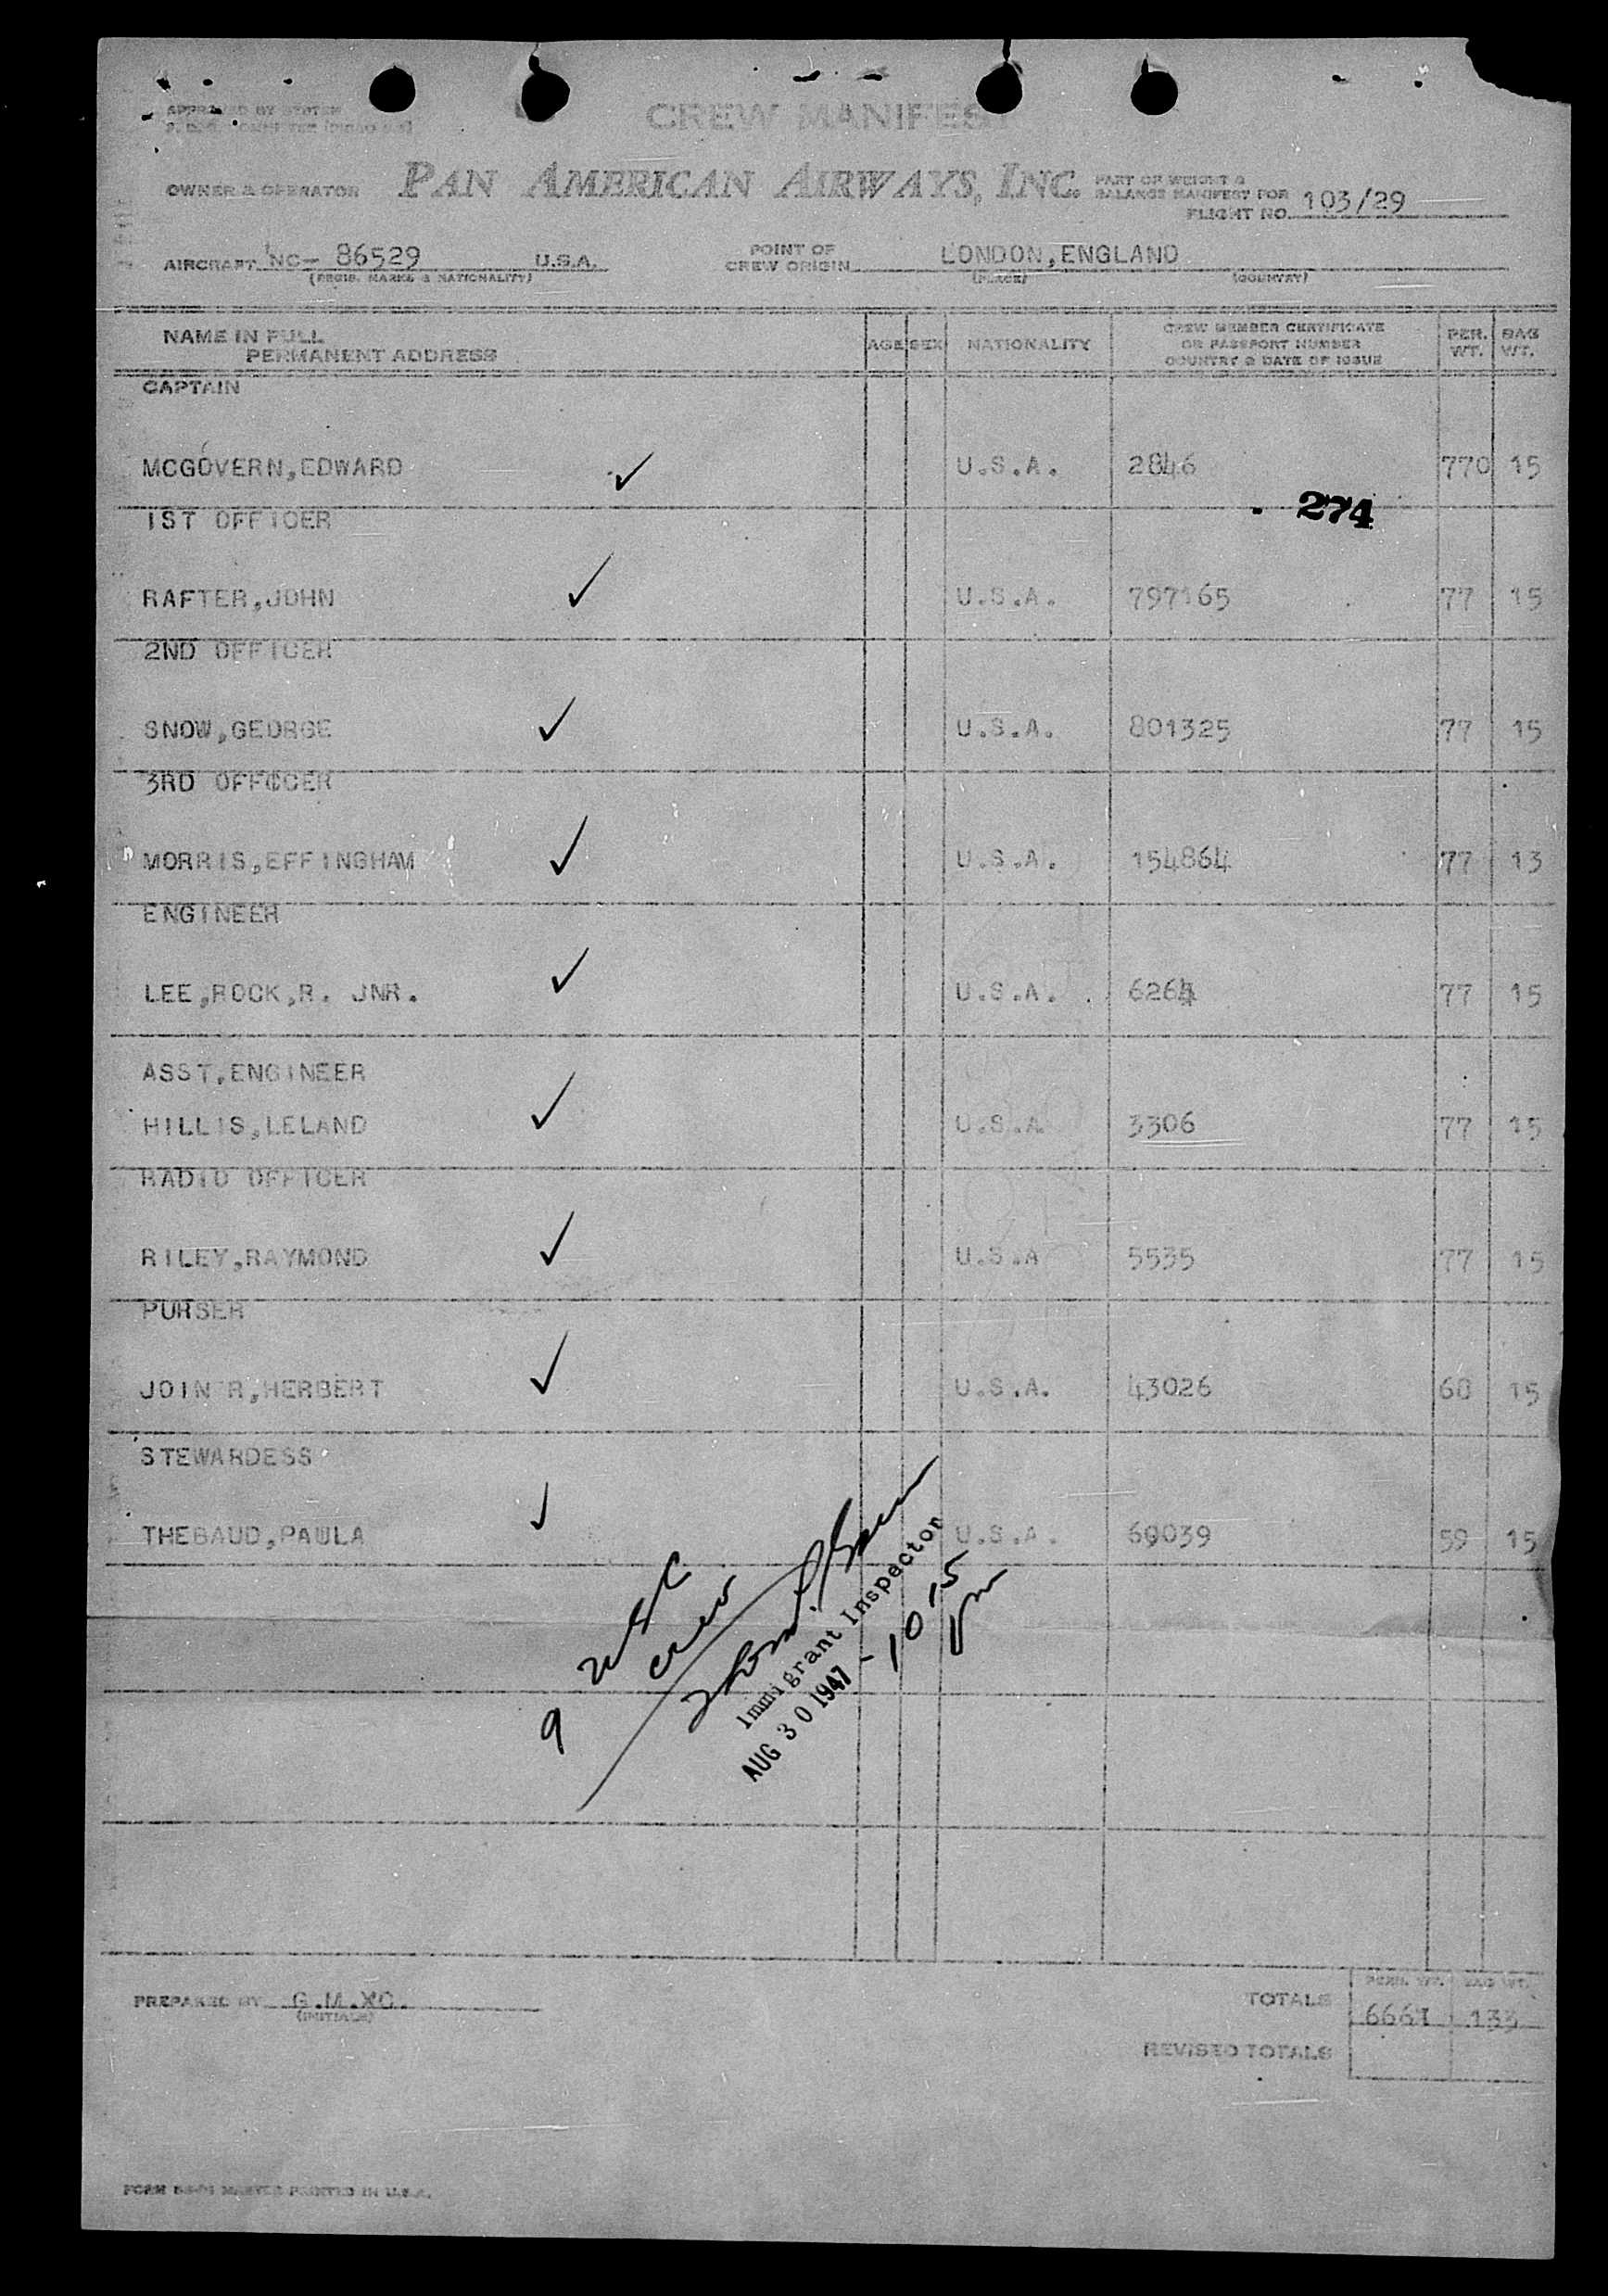 APPROVED BY SYSTEM
CREW MANIFEST
OWNER & OPERATOR PAN AMERICAN AIRWAYS, INC. PART OF WEIGHT &
BALANCE MANIFEST FOR
FLIGHT NO. 103/29
AIRCRAFT NC- 86529 U.S.A. POINT OF
CREW ORIGIN LONDON,ENGLAND
(REGIS. MARKS & NATIONALITY) (PLACE) (COUNTRY)
NAME IN FULL
PERMANENT ADDRESS AGE SEX NATIONALITY CREW MEMBER CERTIFICATE
OR PASSPORT NUMBER
COUNTRY & DATE OF ISSUE PER. WT. BAG WT.
CAPTAIN
MCGOVERN,EDWARD U.S.A. 2846 770 15
274
1ST OFFICER
RAFTER,JOHN U.S.A. 797165 77 15
2ND OFFICER
SNOW,GEORGE U.S.A. 801325 77 15
3RD OFFCCER
MORRIS,EFFINGHAM U.S.A. 154864 77 13
ENGINEER
LEE,ROCK,R. JNR. U.S.A. 6264 77 15
ASST,ENGINEER
HILLIS,LELAND U.S.A 3306 77 15
RADIO OFFICER
RILEY,RAYMOND U.S.A 5535 77 15
PURSER
JOIN R,HERBERT U.S.A. 43026 68 15
STEWARDESS
THEBAUD,PAULA U.S.A. 60039 59 15
9 USC
crew
Immigrant Inspector
AUG 30 1947 - 10 15
pm
PREPARED BY G.M.XO.
(INITIALS)
PERS. WT. BAG WT.
TOTALS 133
REVISED TOTALS
MASTER PRINTED IN U.S.A.